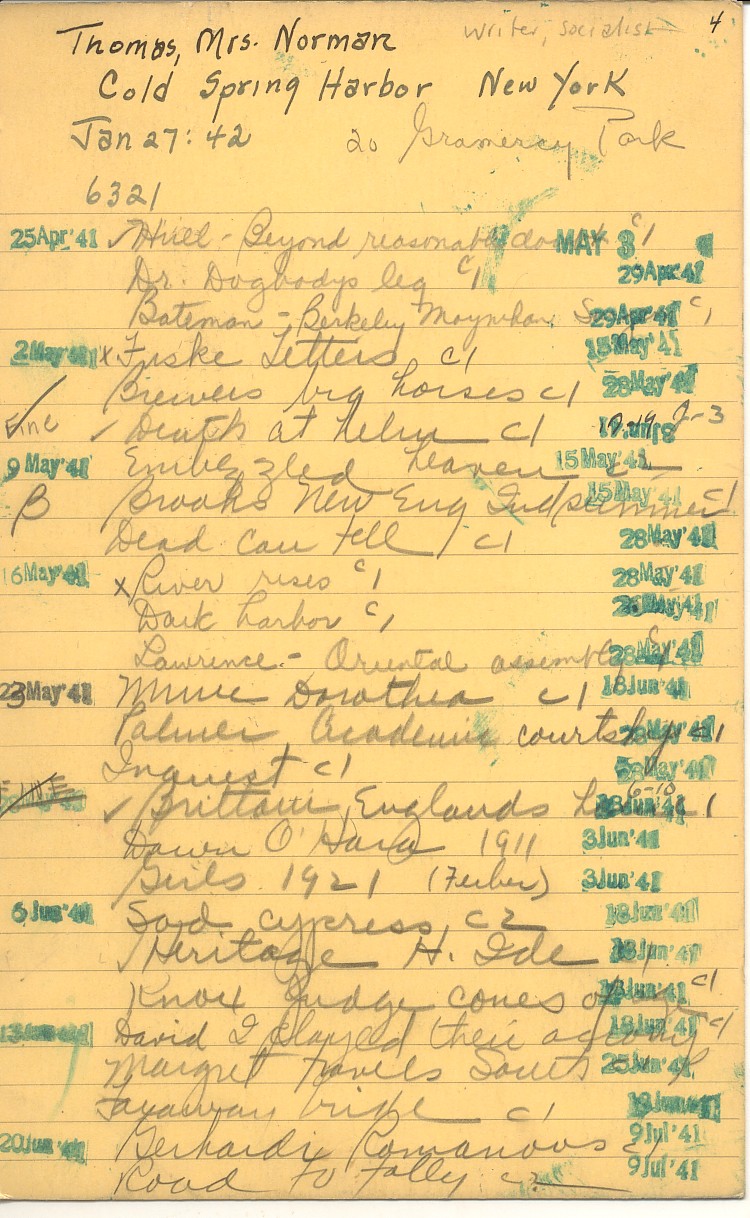 writer, socialist 4
Thomas, Mrs. Norman
Cold Spring Harbor New York
Jan 27: 42 20 Gramercy Park
6321
25 Apr '41 ✓ Hull - Beyond reasonable doubt c1 MAY 3
Dr. Dogbodys leg c1 29 Apr '41
Bateman - Berkeley Moynihan 29 Apr '41 c1
2 May '41 x Letters c1 15 May '41
Brewers big horses c1 28 May '41
Fine ✓ Death at helm c1
9 May '41 Embezzled heaven c 15 May '41
B Brooks New Eng Indsummer c1 15 May '41
Dead can tell c1 28 May '41
16 May '41 x River rises c1 28 May '41
Dark harbor c1
Lawrence - Oriental assembly c1 28 May '41
23 May '41 Dorothea c1 18 Jun '41
Palmer Academic courtship c1 28 May '41
Inquest c1 28 May '41
FINE ✓ Brittain Englands c1 6-10
Dawn O'Hara 1911 3 Jun '41
Girls 1921 (Ferber) 3 Jun '41
6 Jun '41 Sad cypress c2 18 Jun '41
✓ Heritage H. Ide 18 Jun '41
Knox Judge comes of c1 18 Jun '41
13 Jun '41 David I played their agony c1 18 Jun '41
Margret Travels South 25 Jun '41
Faraway bride c1
20 Jun '41 Gerhardi Romanovs 9 Jul '41
Road to folly c2 9 Jul '41